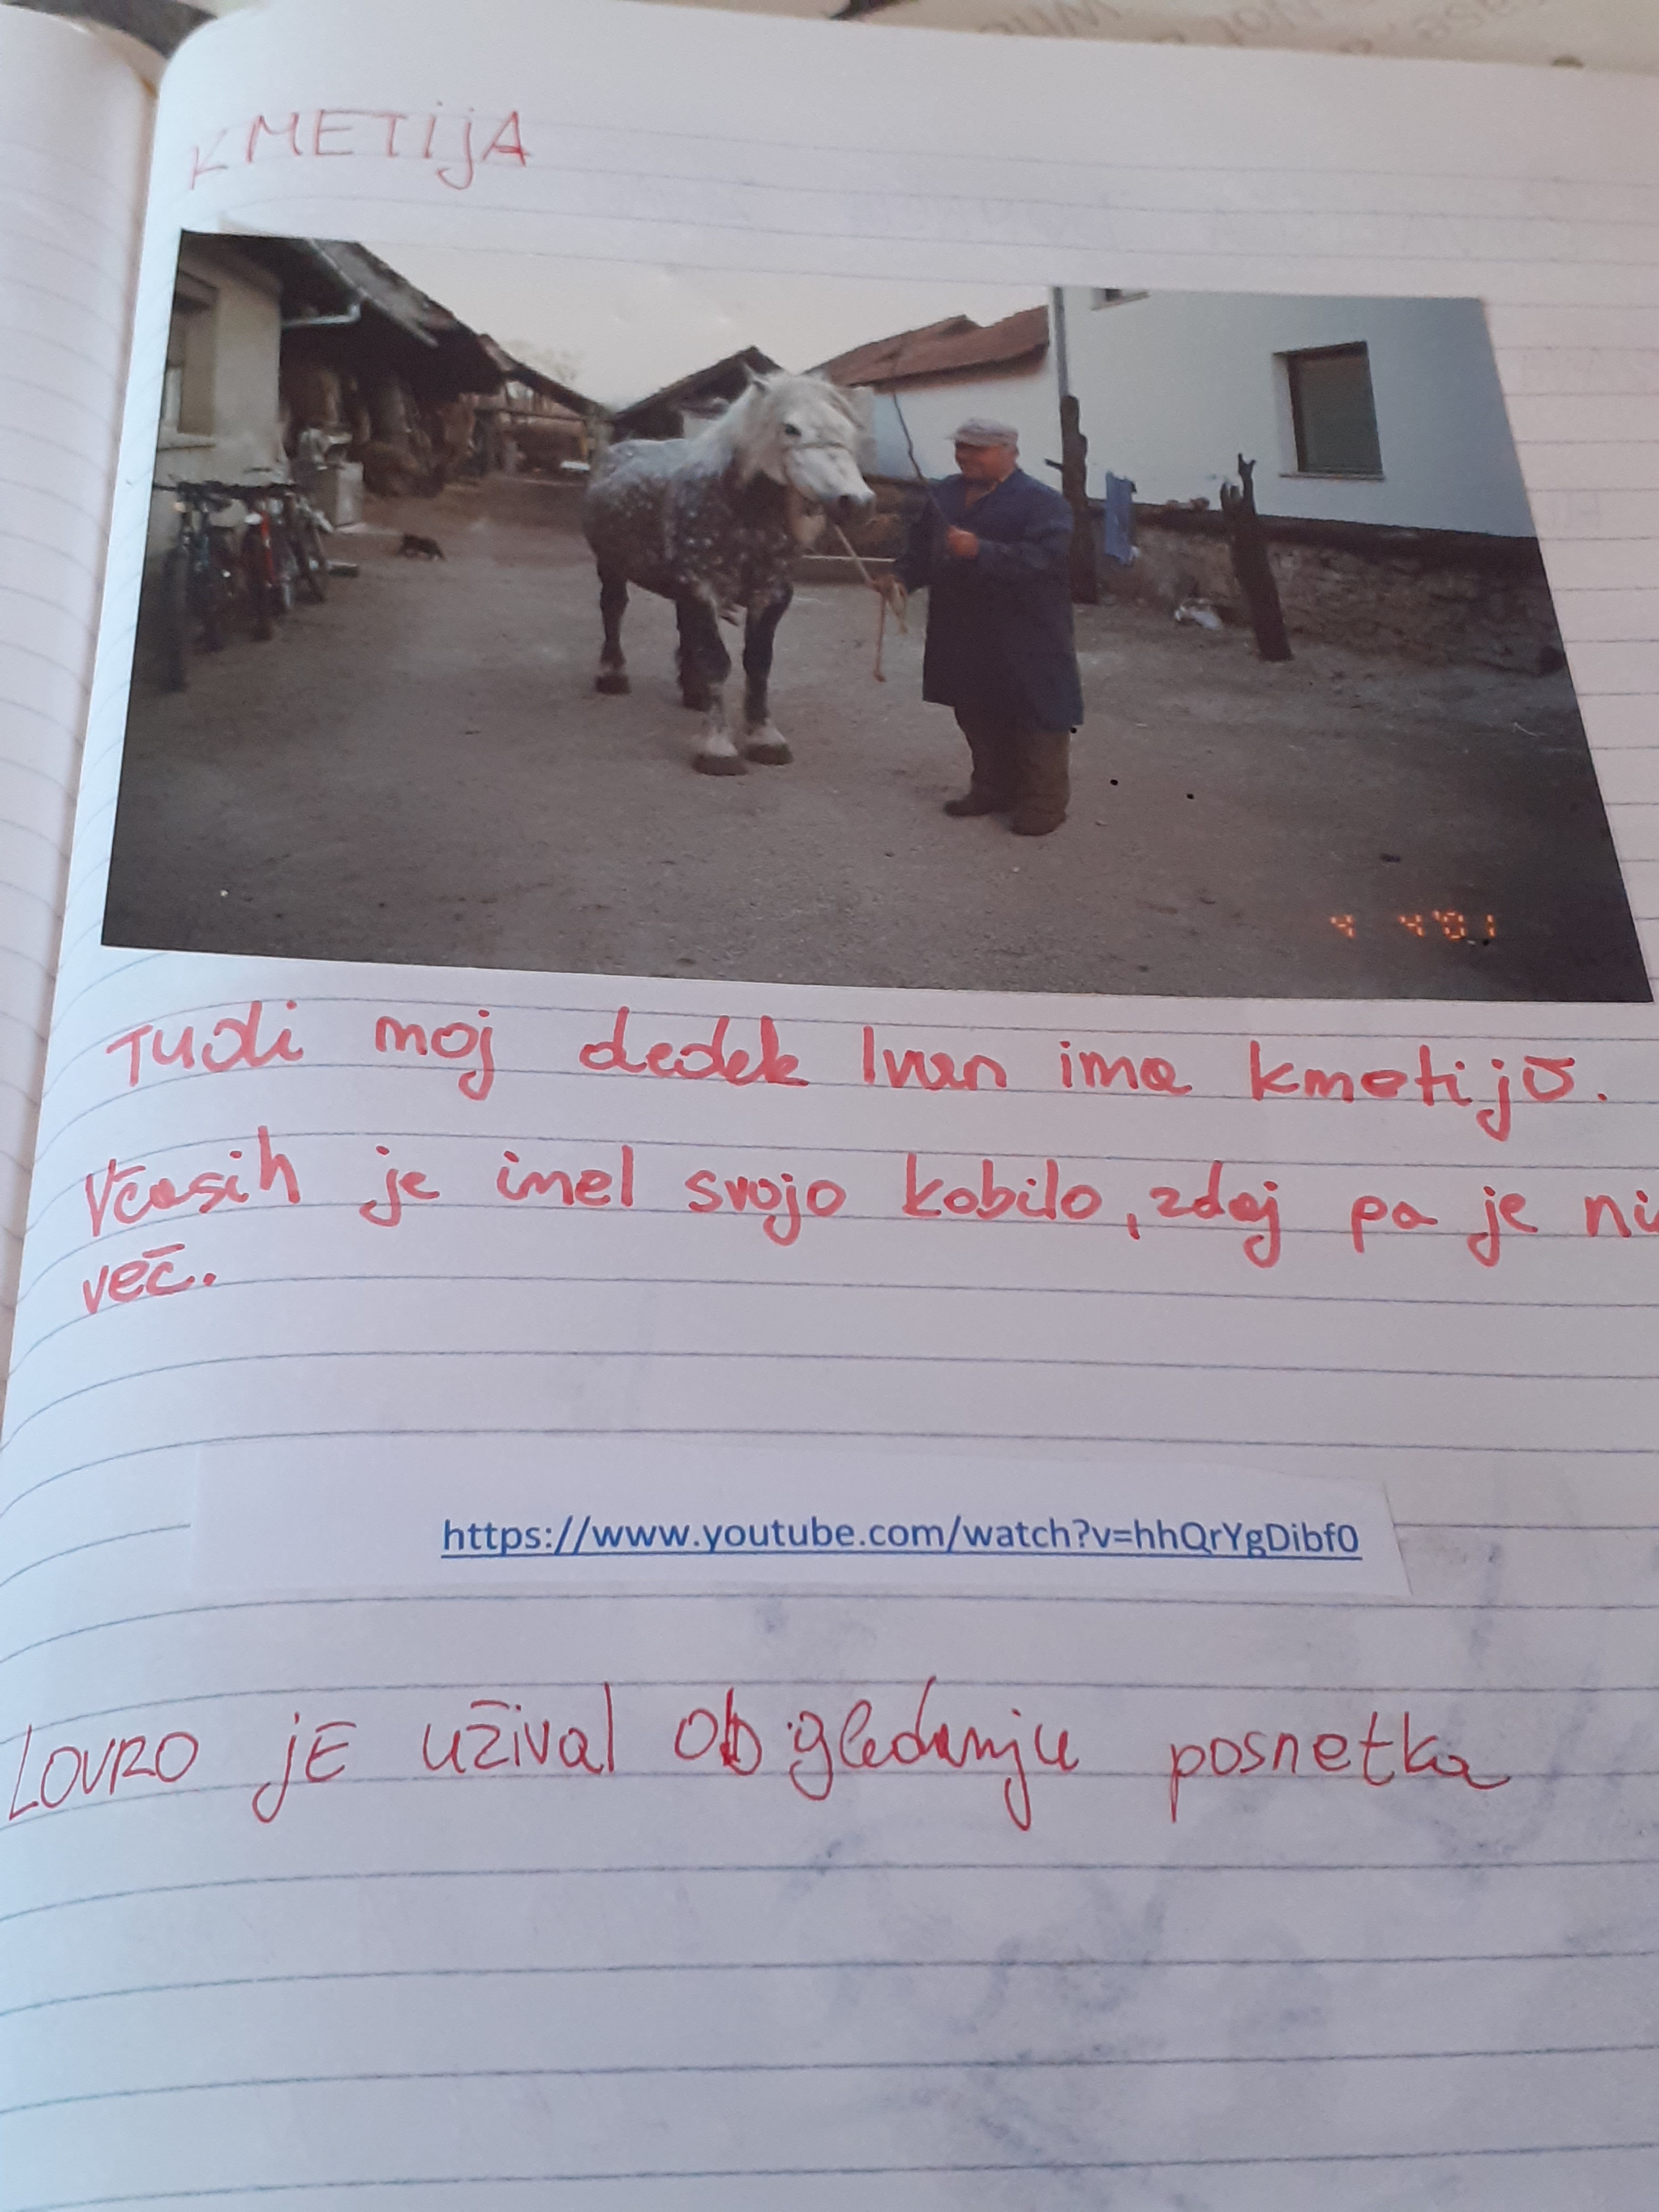 KMETijA
4 4'01
TUDi moj dedek Ivan ima kmetijo.
Včasih je imel svojo kobilo, zdaj pa je ni
več.
https://www.youtube.com/watch?v=hhQrYgDibf0
LOVRO jE užival ob gledanju posnetka